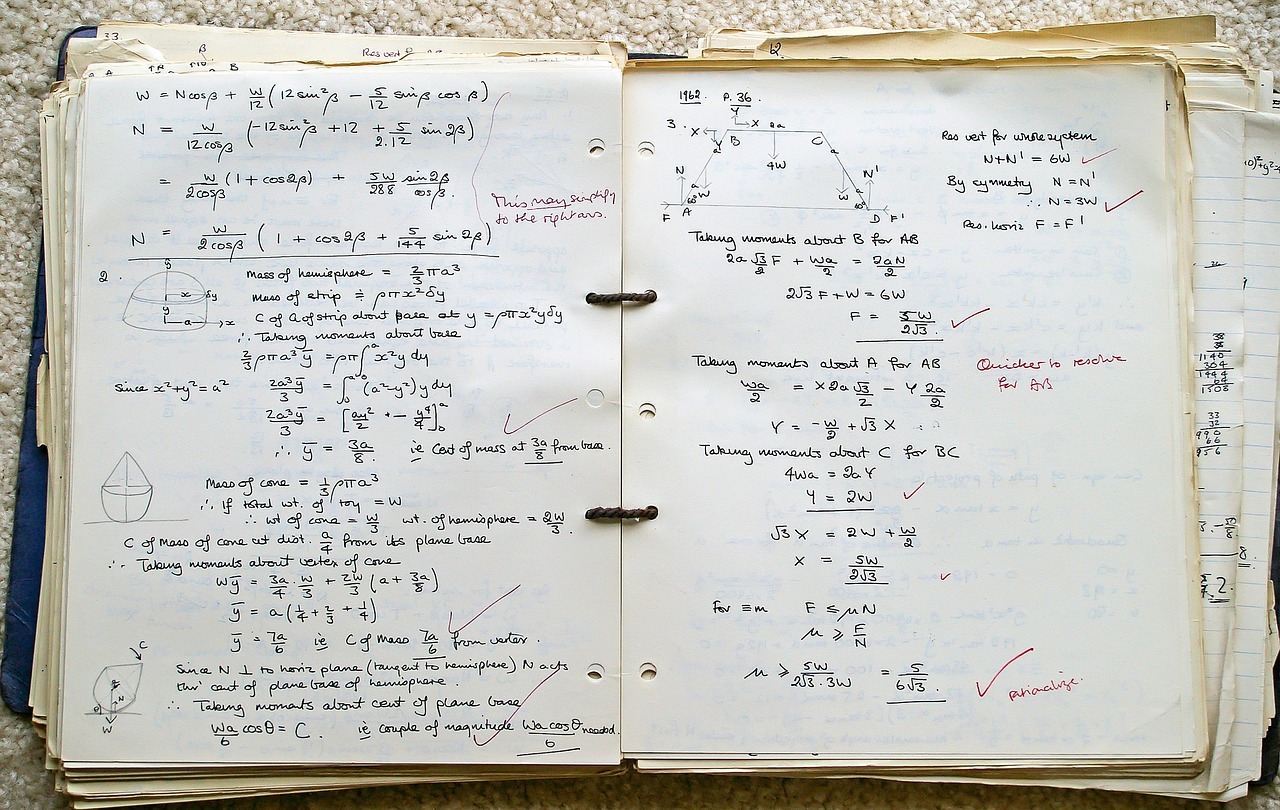 33.
β
Res vert
B
W = Ncosβ + W/12 (12sin²β − 5/12 sinβ cosβ)
N = W/12cosβ (−12sin²β + 12 + 5/2.12 sin2β)
= W/2cosβ (1 + cos2β) + 5W/288 sin2β/cosβ.
This may simplify
to the right ans.
N = W/2cosβ (1 + cos2β + 5/144 sin2β)
2.
y
x
δy
y
a
x
Mass of hemisphere = 2/3 πa³
Mass of strip ≑ ρπx²δy
C of G of strip about base at y = ρπx²yδy
∴ Taking moments about base
2/3 ρπa³ȳ = ρπ∫₀ᵃ x²y dy
Since x²+y²=a² 2a³ȳ/3 = ∫₀ᵃ (a²−y²)y dy
2a³ȳ/3 = [ay²/2 − y⁴/4]₀ᵃ
∴ ȳ = 3a/8 ie Cent of mass at 3a/8 from base.
Mass of cone = 1/3 ρπa³
∴ If total wt. of toy = W
∴ wt of cone = W/3 wt. of hemisphere = 2W/3.
C of Mass of cone at dist. a/4 from its plane base
∴ Taking moments about vertex of cone
Wȳ = 3a/4 · W/3 + 2W/3 (a + 3a/8)
ȳ = a(1/4 + 2/3 + 1/4)
ȳ = 7a/6 ie C of Mass 7a/6 from vertex.
C
θ
N
W
Since N ⊥ to horiz plane (tangent to hemisphere) N acts
thro' cent of plane base of hemisphere.
∴ Taking moments about cent of plane base
Wa/6 cosθ = C. ie couple of magnitude Wa cosθ/6 needed.
12.
1962. P. 36.
3.
Y
X
2a
X
B
C
Y
a
a
4W
N
a
W
60°
W
a
N'
60°
F
A
D
F'
Res vert for whole system
N+N' = 6W
By symmetry N = N'
∴ N = 3W
Res. horiz F = F'
Taking moments about B for AB
2a √3/2 F + Wa/2 = 2aN/2
2√3 F + W = 6W
F = 5W/2√3.
Taking moments about A for AB
Quicker to resolve
for AB
Wa/2 = X 2a √3/2 − Y 2a/2
Y = −W/2 + √3 X
Taking moments about C for BC
4Wa = 2aY
Y = 2W
√3 X = 2W + W/2
X = 5W/2√3
For ≡m F ≤ μN
μ ≥ F/N
μ ≥ 5W/2√3.3W = 5/6√3.
rationalize.
38
38
1140
304
1444
64
1508
33
32
990
66
956